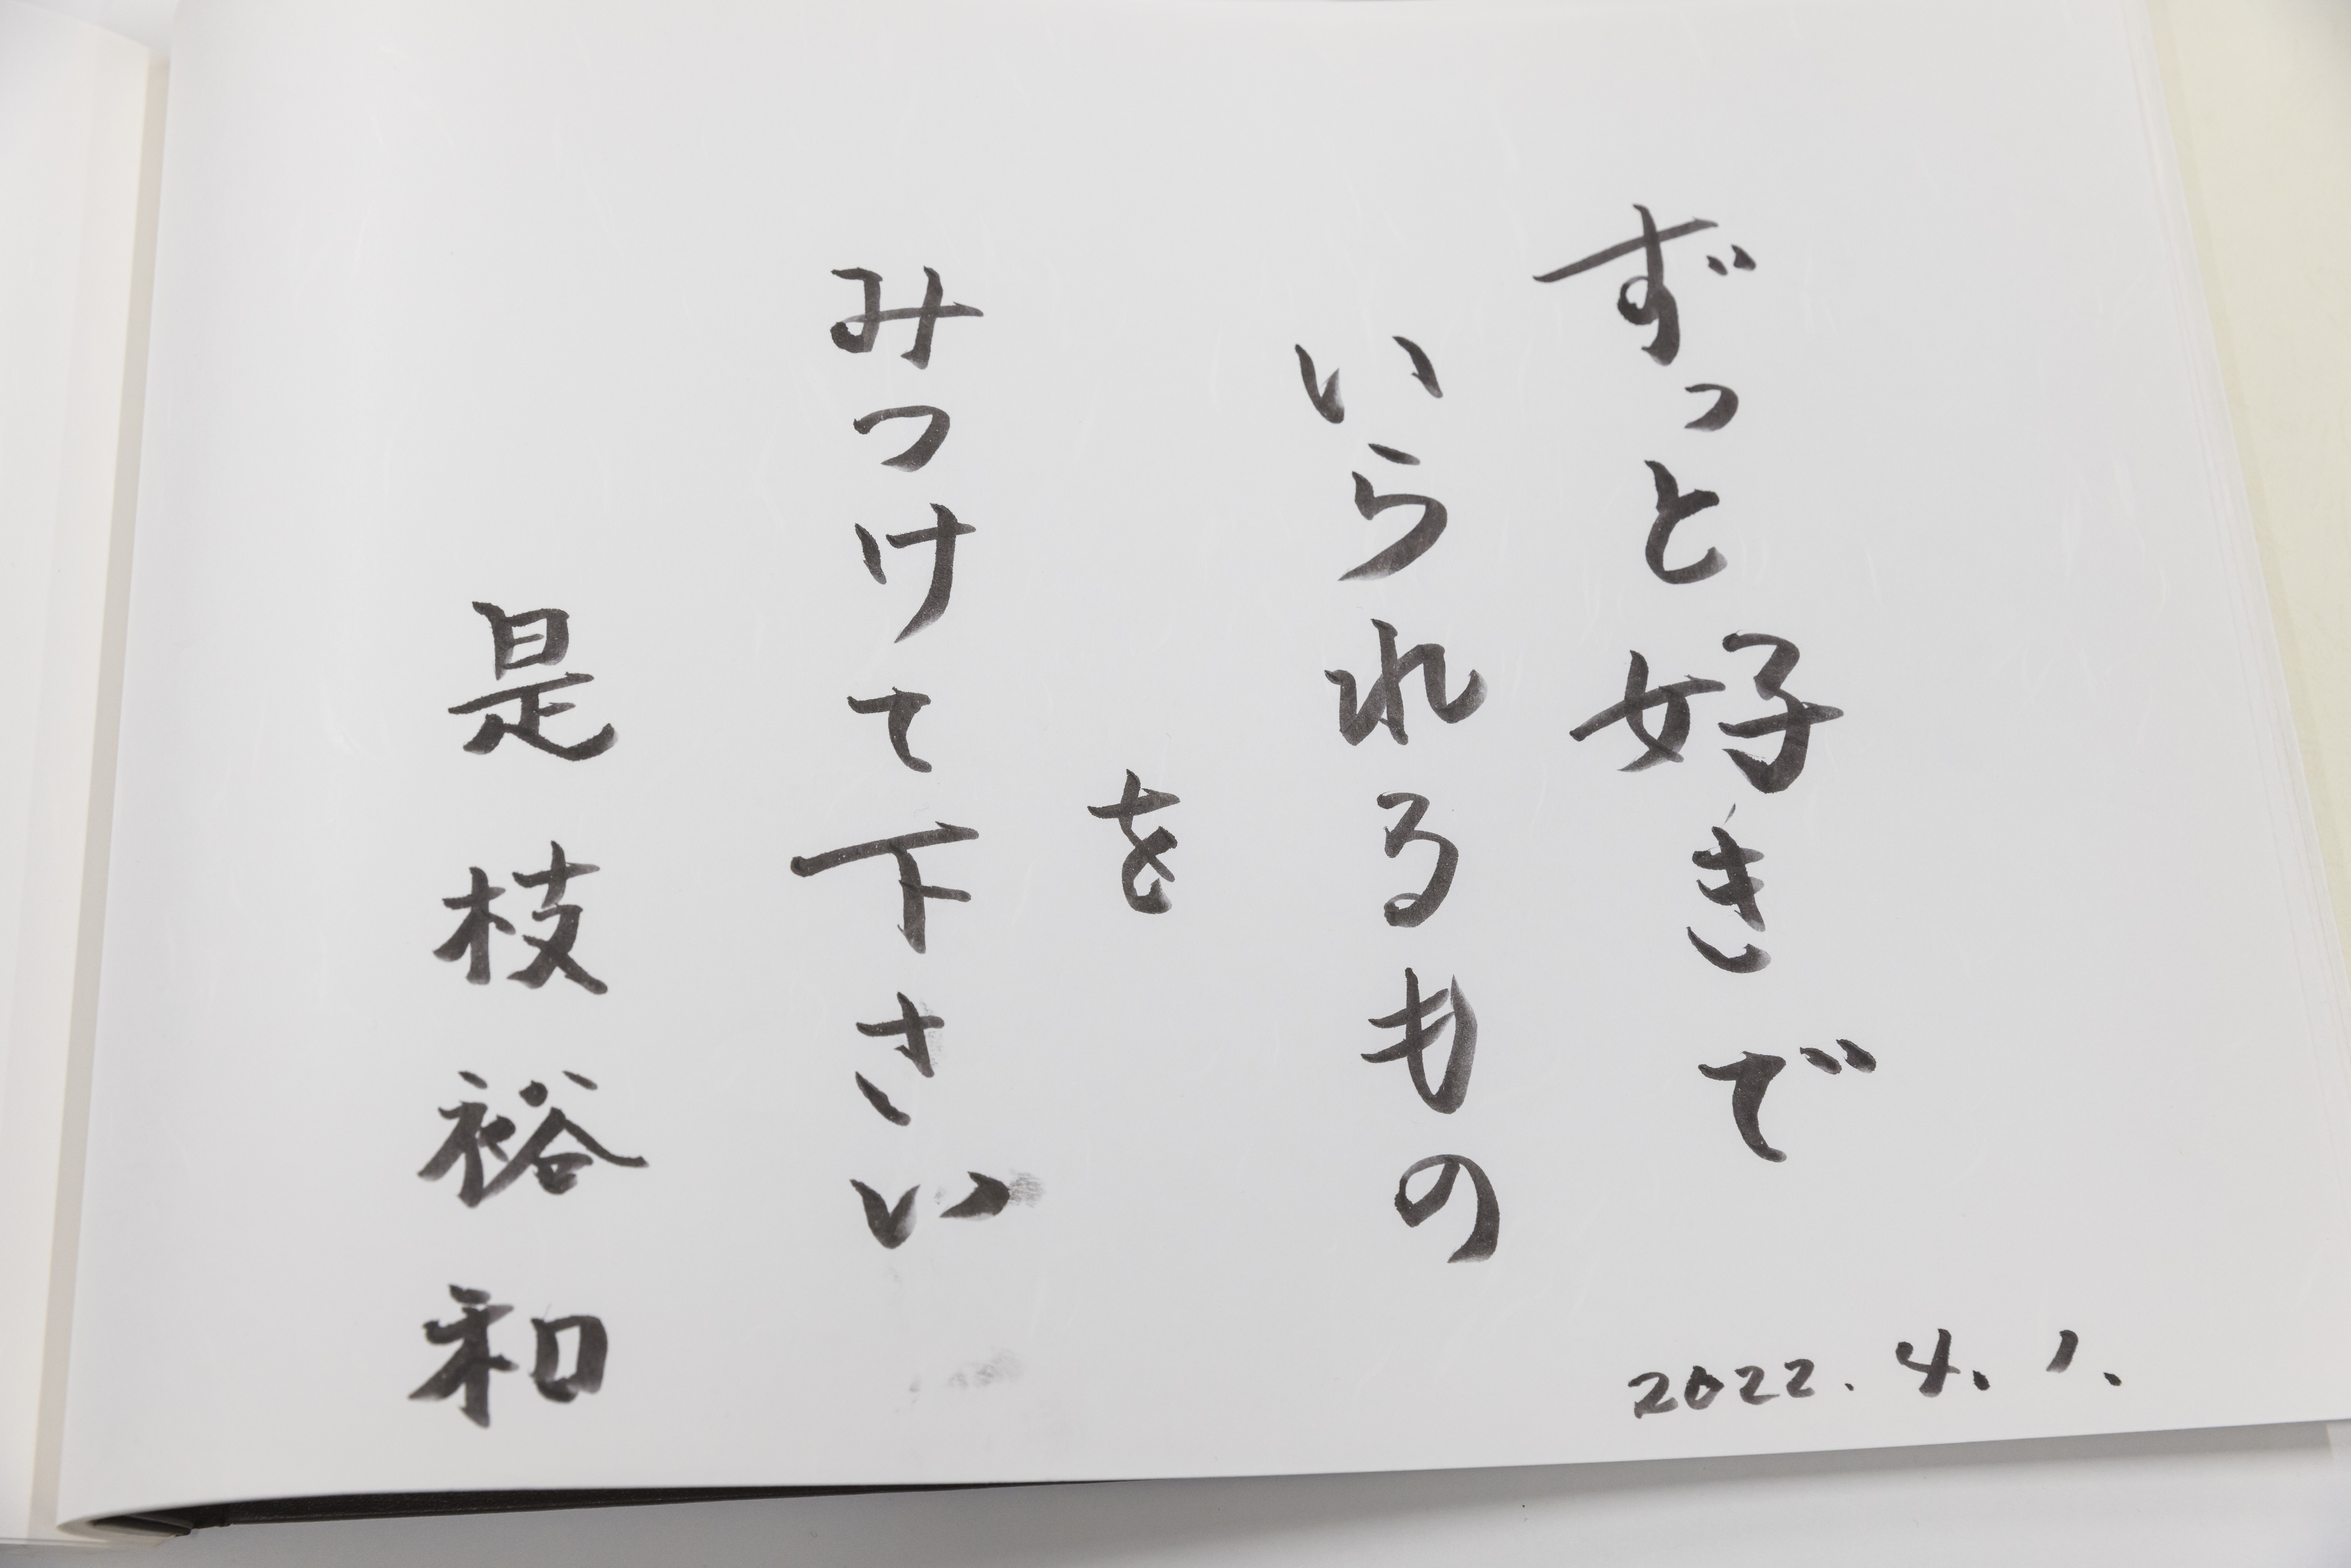 ずっと好きで
いられるもの
を
みつけて下さい
是枝裕和
2022.4.1.